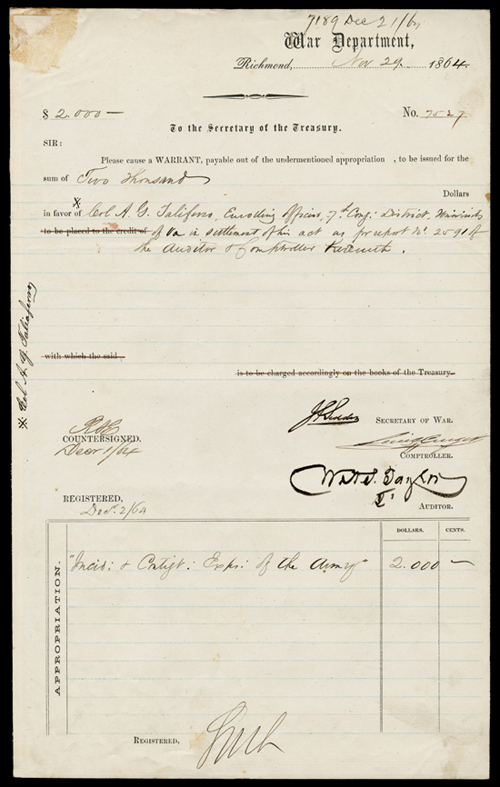 7189 Dec 21/64
War Department,
Richmond, Nov 29 1864.
$ 2.000 —
No. 7527
To the Secretary of the Treasury.
SIR:
Please cause a WARRANT, payable out of the undermentioned appropriation , to be issued for the
sum of Two thousand
Dollars
in favor of Col A. G. Taliferro, Enrolling Officer, 7th Cong: District,
to be placed to the credit of of Va in settlement of his act as pr report No. 2591 of
the Auditor & Comptroller herewith.
with which the said
is to be charged accordingly on the books of the Treasury.
※ Col A. G. Taliaferro
SECRETARY OF WAR.
COUNTERSIGNED.
Decr 1/64
COMPTROLLER.
AUDITOR.
REGISTERED,
Decr 2/64
DOLLARS. CENTS.
APPROPRIATION.
"Incid: & Contigt: Exps: of the Army" 2.000 —
REGISTERED,